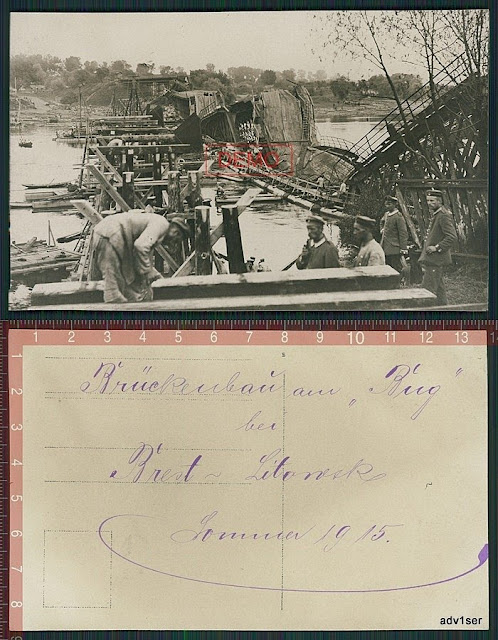 DEMO
1 2 3 4 5 6 7 8 9 10 11 12 13
1
2
3
4
5
6
7
8
Brückenbau am „Bug"
bei
Brest - Litowsk
Sommer 1915.
adv1ser